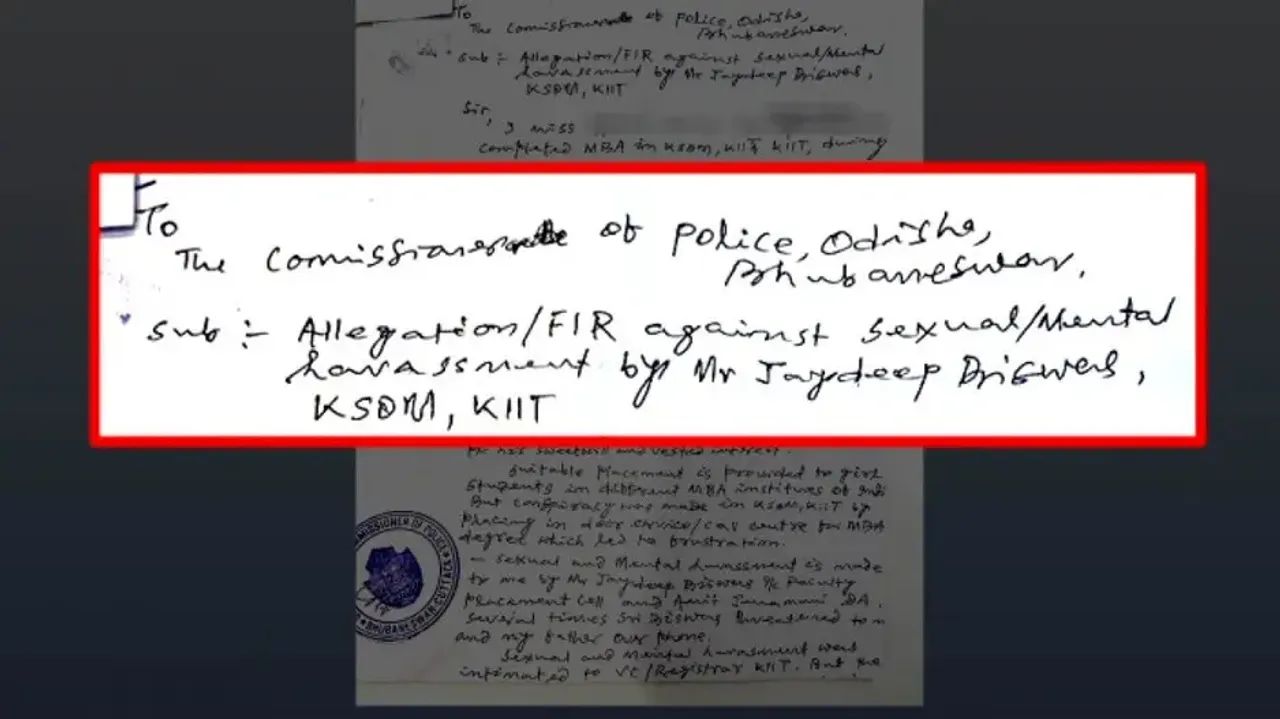 To
The Comissioner of Police, Odisha,
Bhubaneswar.
Sub :- Allegation/FIR against sexual/Mental
harassment by Mr Jaydeep Biswas,
KSOM, KIIT
Sir,
I miss
completed MBA in KSOM, KIIT, during
To
The Comissioner of Police, Odisha,
Bhubaneswar.
Sub :- Allegation/FIR against sexual/Mental
harassment by Mr Jaydeep Biswas,
KSOM, KIIT
his sweetwill and vested interest.
Suitable placement is provided to girl
Students in different MBA institutes of
But conspiracy was made in KSOM, KIIT by
placing in door service/ centre for MBA
degree which led to frustration.
- Sexual and Mental harassment is made
to me by Mr Jaydeep Biswas Faculty
placement cell and Amit
Several times Sri Biswas threatened to
and my father over phone.
Sexual and Mental harassment were
intimated to VC/Registrar KIIT. But the
COMMISSIONER OF POLICE
BHUBANESWAR CUTTACK